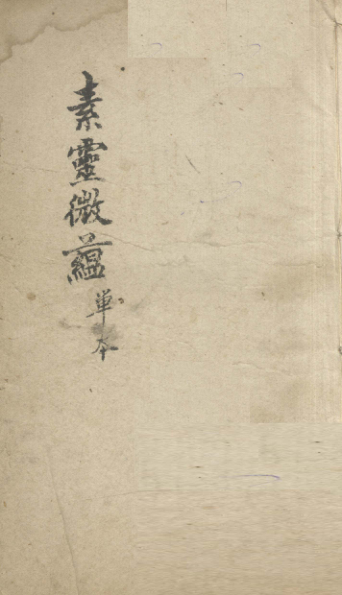 素靈微蘊
单本